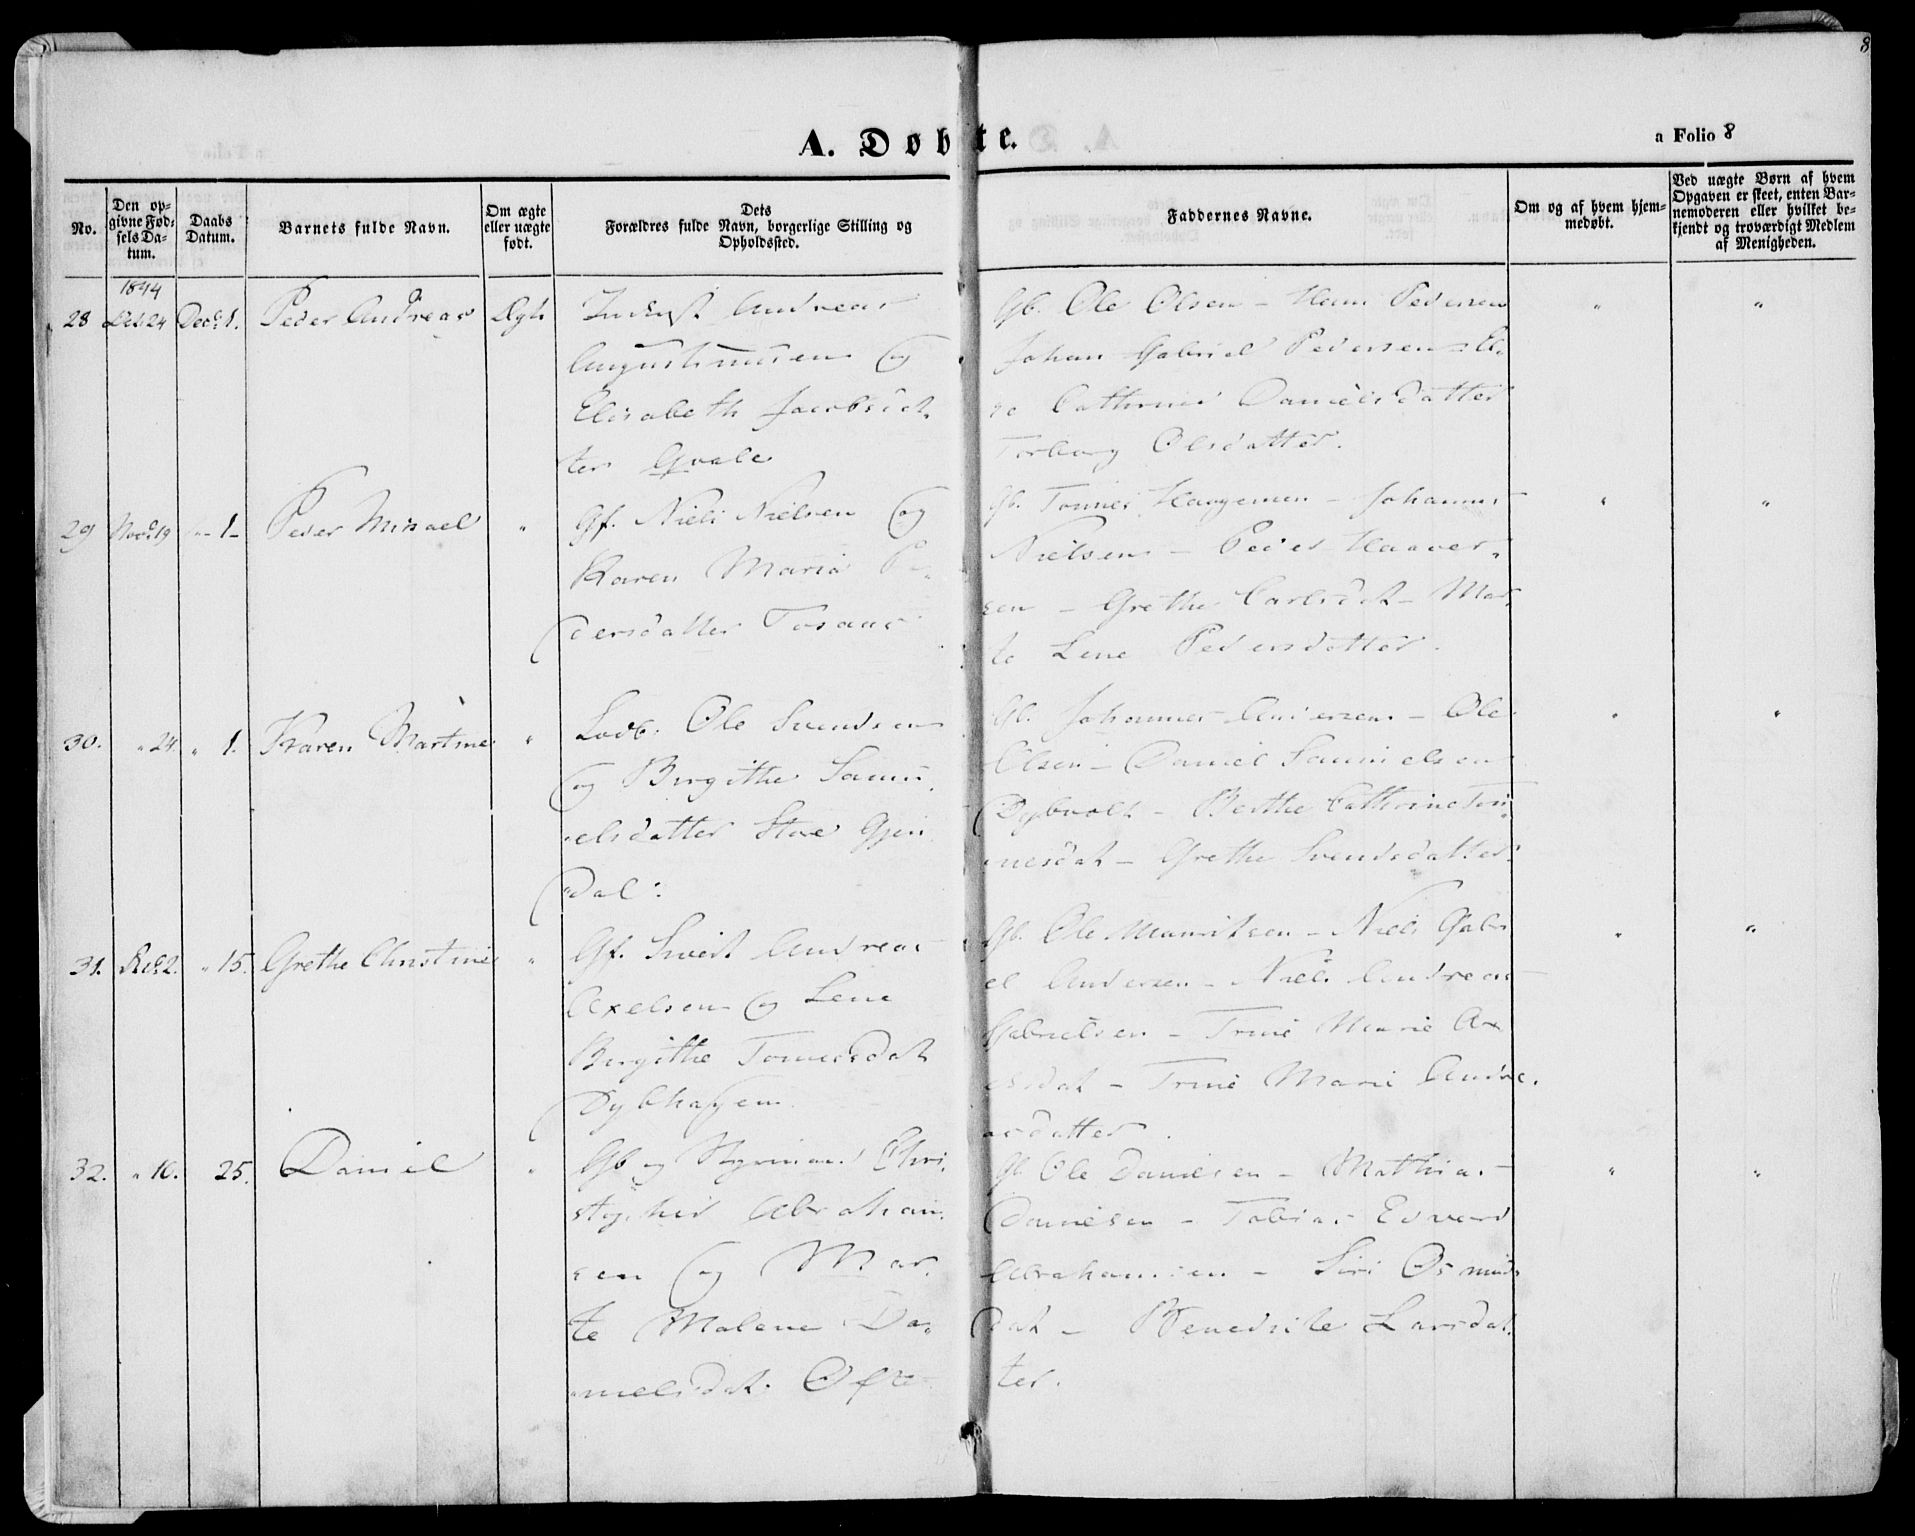 8
A. Døbte.
a Folio 8
No.
Den op-
givne Fød-
sels Da-
tum.
Daabs
Datum.
Barnets fulde Navn.
Om ægte
eller uægte
født.
Dets
Forældres fulde Navn, borgerlige Stilling og
Opholdssted.
Faddernes Navne.
Om og af hvem hjem-
medøbt.
Ved uægte Børn af hvem
Opgaven er skeet, enten Bar-
nemoderen eller hvilket be-
kjendt og troværdigt Medlem
af Menigheden.
1844
28 24 Decb. 1. Peder Andreas Ægte
Andreas
Augustinusen og
Elisabeth Jacobsdat
ter
Gb. Ole Olsen - Hans Pedersen
Johan Gabriel Pedersen - El-
se Cathrine Danielsdatter
Torborg Olsdatter.
" "
29 Novb. 19 " 1 - Peder Misael "
Gf. Niels Nielsen og
Karen Maria Pe-
dersdatter
Gb. Tønnes Haagensen - Johannes
Nielsen - Peder
sen - Grethe Carlsdat - Mar-
te Lene Pedersdatter.
" "
30. " 24. " 1. Karen Martine "
Ole Svendsen
og Birgithe Samu-
elsdatter
dal.
Gb. Johannes Andersen - Ole
Olsen - Daniel Samuelsen
- Berthe Cathrine Tøn-
nesdat - Grethe Svendsdatter
" "
31. Decb. 2. " 15. Grethe Christine "
Gf. Andreas
Axelsen og Lene
Birgithe Tønnesdat
Gb. Ole Mauritsen - Niels Gabri
el Andersen - Niels Andreas
Gabrielsen - Trine Marie Ax
elsdat - Trine Marie Andre-
asdatter.
" "
32. " 16. 25. Daniel "
Gb og Styrmand Chri-
stopher Abraham-
sen og Mar-
te Malene Da-
nielsdat.
Gb. Ole Danielsen - Mathias
Danielsen - Tobias Edvard
Abrahamsen - Siri Osmunds
dat - Benedicte Larsdat-
ter.
" "